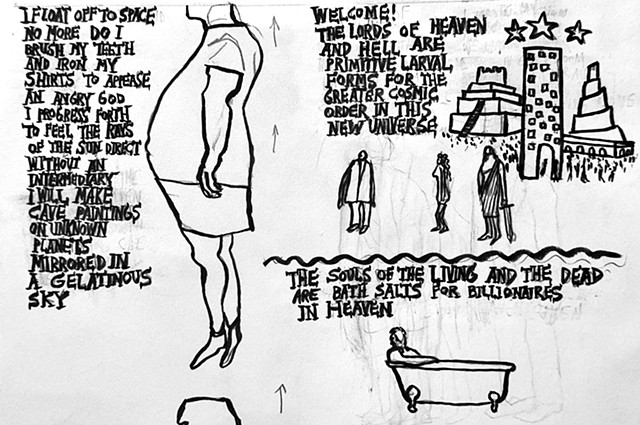 I FLOAT OFF TO SPACE
NO MORE DO I
BRUSH MY TEETH
AND IRON MY
SHIRTS TO APPEASE
AN ANGRY GOD
I PROGRESS FORTH
TO FEEL THE RAYS
OF THE SUN DIRECT
WITHOUT AN
INTERMEDIARY
I WILL MAKE
CAVE PAINTINGS
ON UNKNOWN
PLANETS
MIRRORED IN
A GELATINOUS
SKY
WELCOME!
THE LORDS OF HEAVEN
AND HELL ARE
PRIMITIVE LARVAL
FORMS FOR THE
GREATER COSMIC
ORDER IN THIS
NEW UNIVERSE
THE SOULS OF THE LIVING AND THE DEAD
ARE BATH SALTS FOR BILLIONAIRES
IN HEAVEN